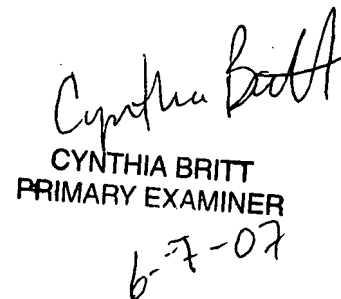 Cynthia Britt
CYNTHIA BRITT
PRIMARY EXAMINER
6-7-07